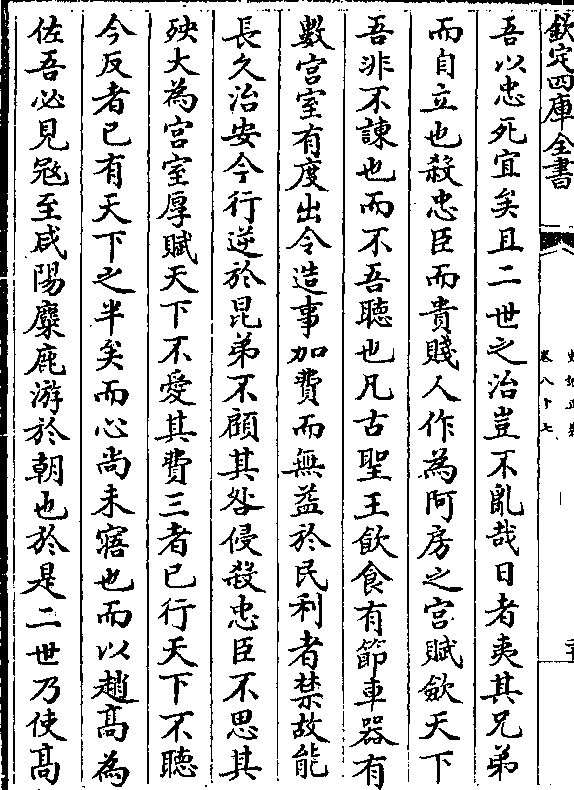 欽定四庫全書
史記正義
卷八十七
吾以忠死宜矣且二世之治豈不亂哉日者夷其兄弟
而自立也殺忠臣而貴賤人作為阿房之宫賦斂天下
吾非不諫也而不吾聽也凡古聖王飲食有節車器有
數宫室有度出令造事加費而無益於民利者禁故能
長久治安今行逆於昆弟不顧其咎侵殺忠臣不思其
殃大為宫室厚賦天下不愛其費三者已行天下不聽
今反者已有天下之半矣而心尚未寤也而以趙髙為
佐吾必見冦至咸陽麋鹿游於朝也於是二世乃使髙